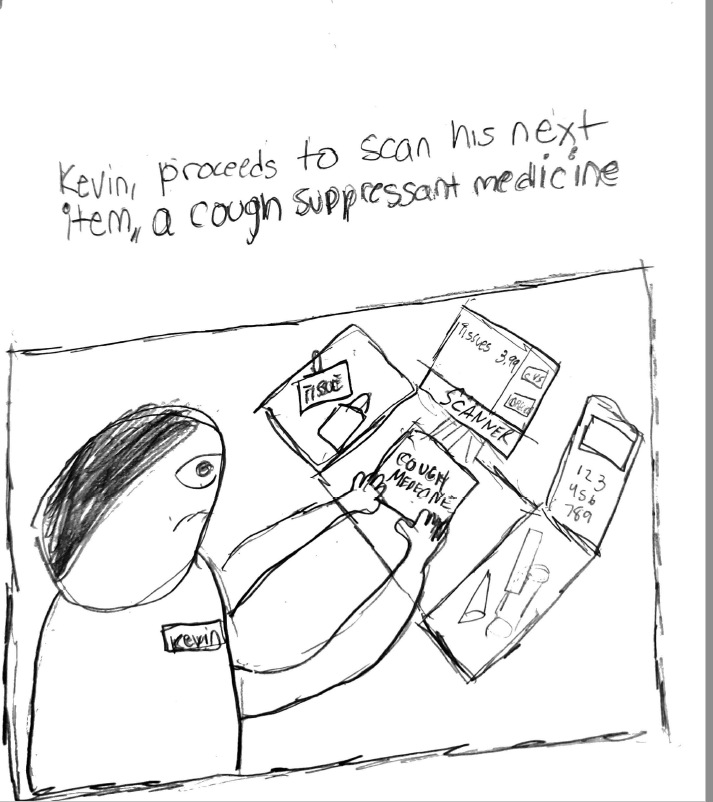 Kevin, proceeds to scan his next
item, a cough suppressant medicine
Tissues 3.99
CVS
SCANNER
TISSUE
COUGH
MEDECINE
123
456
789
Kevin